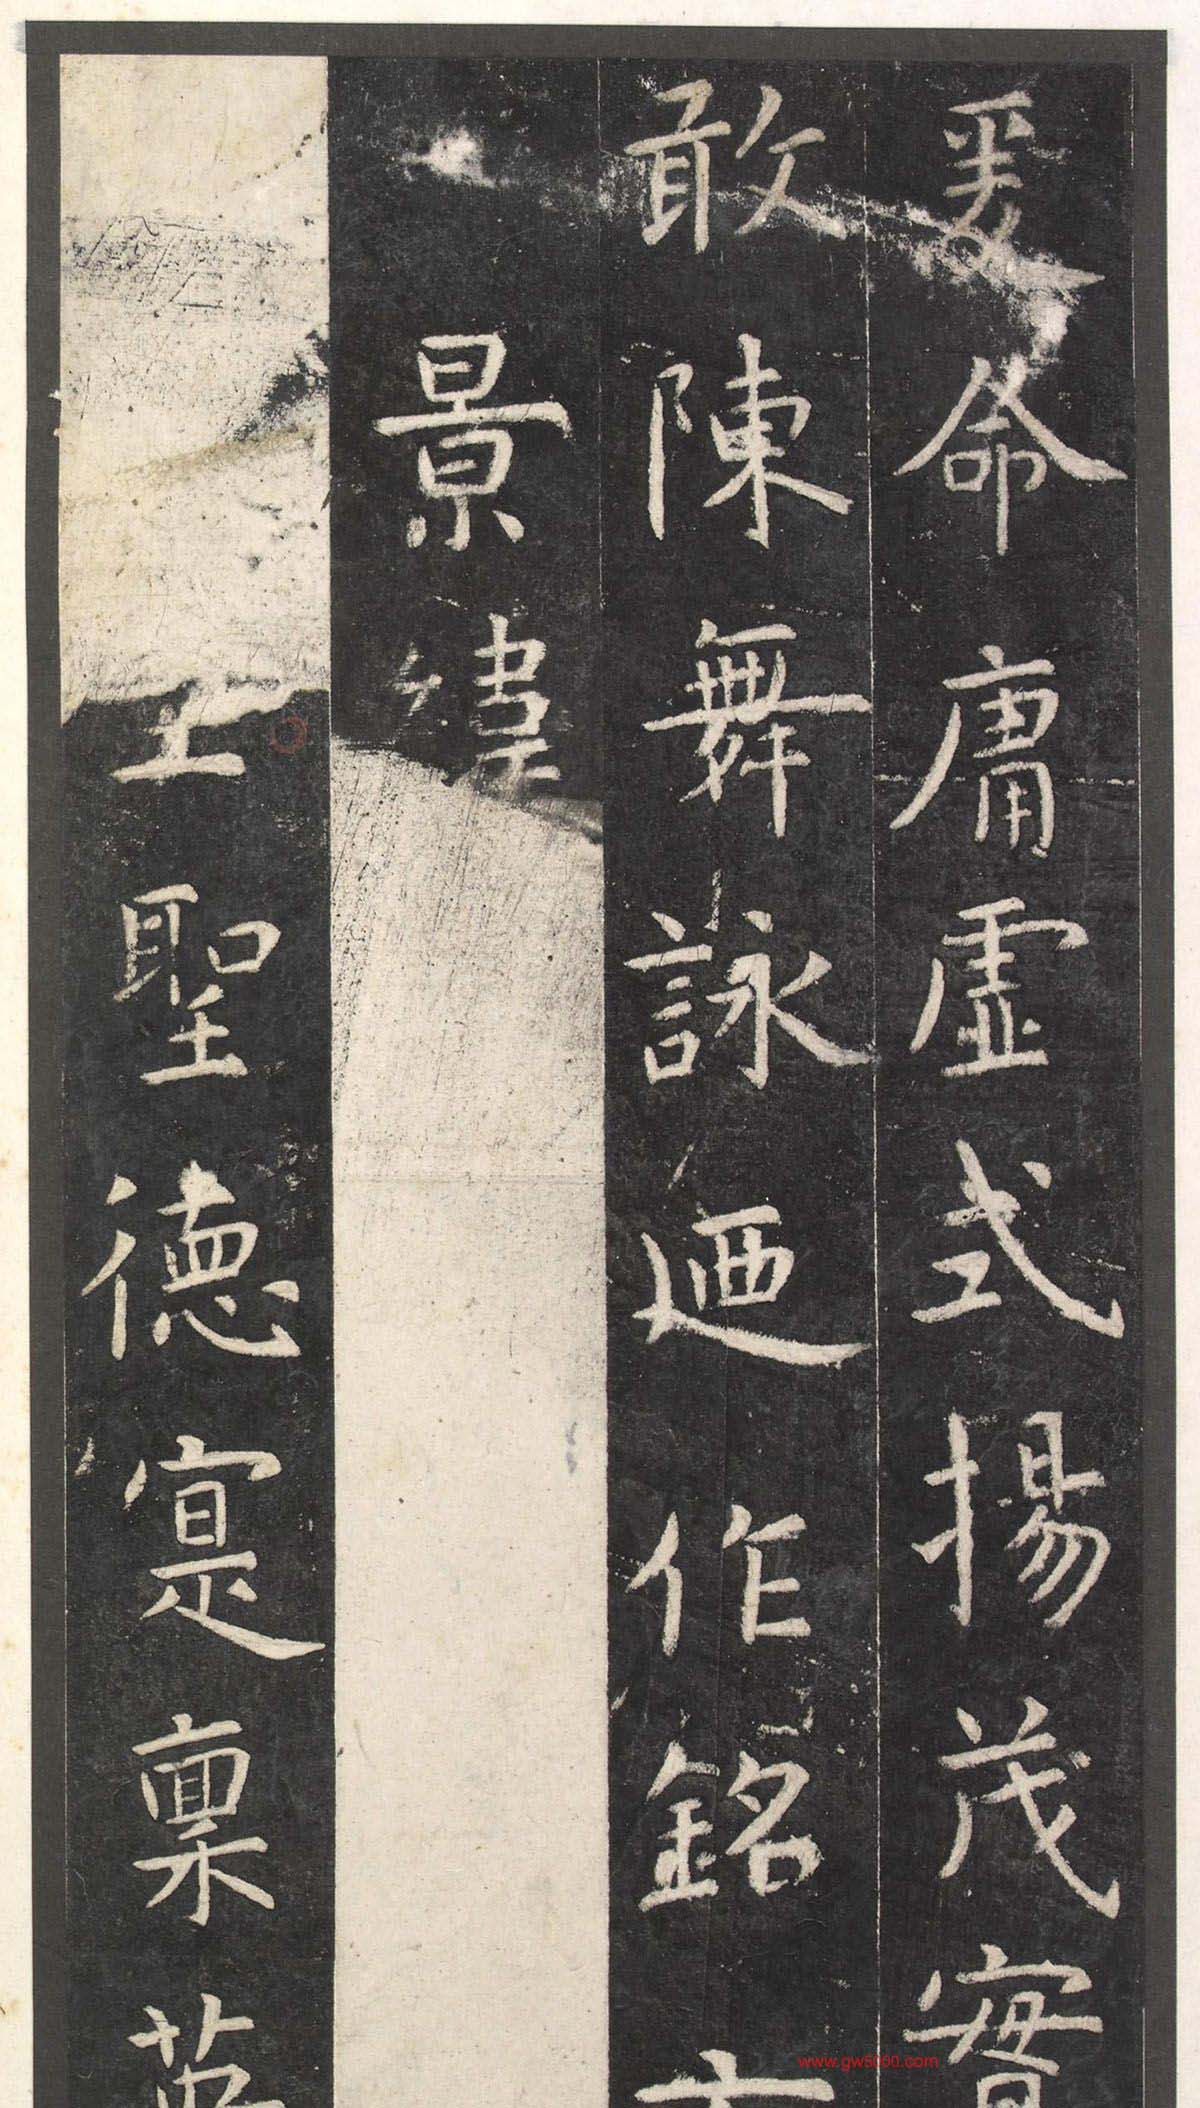 爰命庸虛式揚茂實
敢陳舞詠迺作銘
景緯
上聖德寔稟英
www.gw5000.com